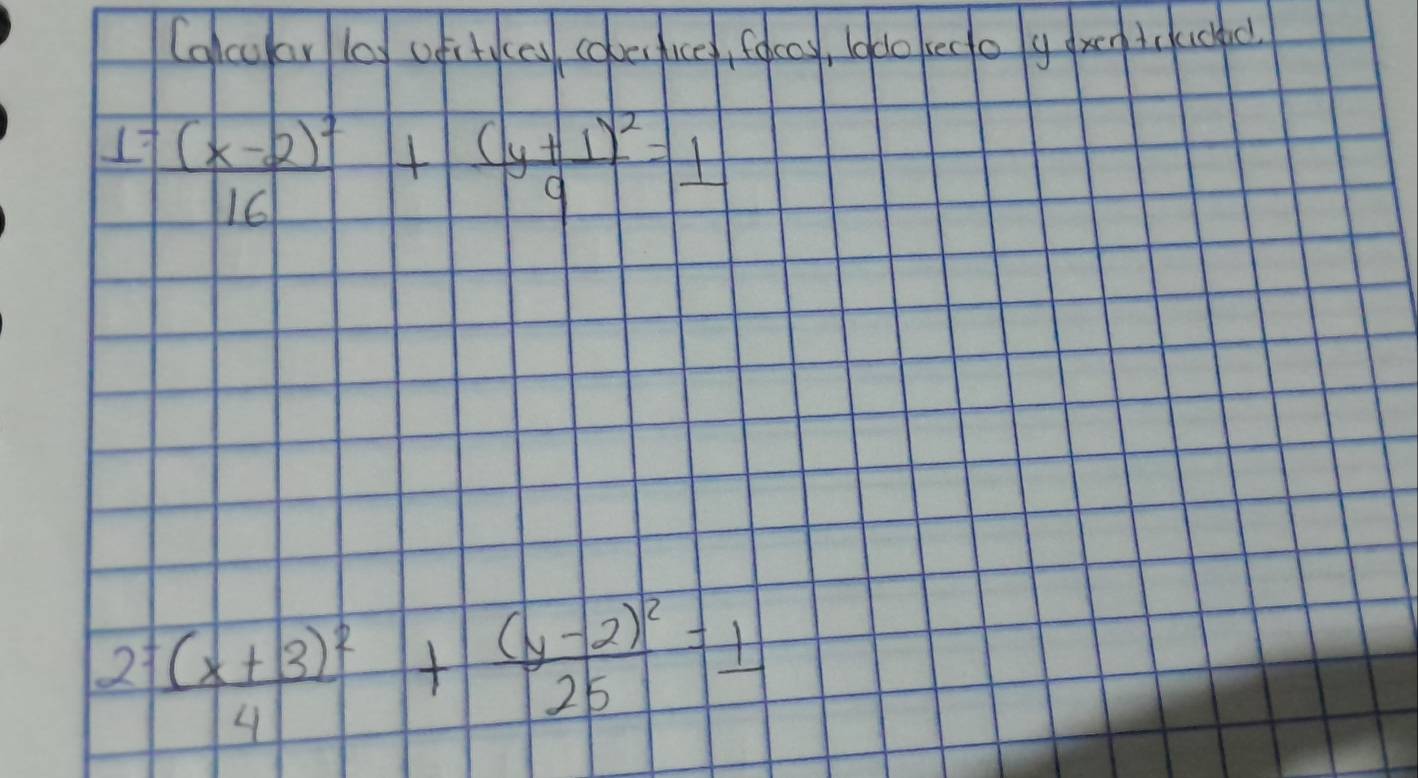 Calcular los vértices, covertices, focos, lado recto y exentricidad.
1- (x-2)² / 16 + (y+1)² / 9 = 1
2- (x+3)² / 4 + (y-2)² / 25 = 1